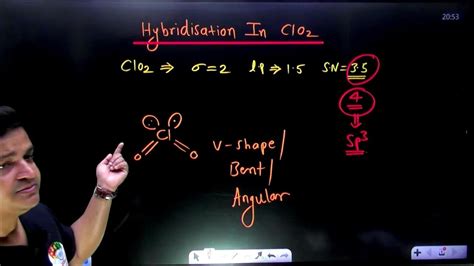 20:53
Hybridisation In ClO2
ClO2 ⇒ σ=2 lp⇒1.5 S.N=3.5
4
⇓
Sp³
Cl
O O
V-shape/
Bent/
Angular